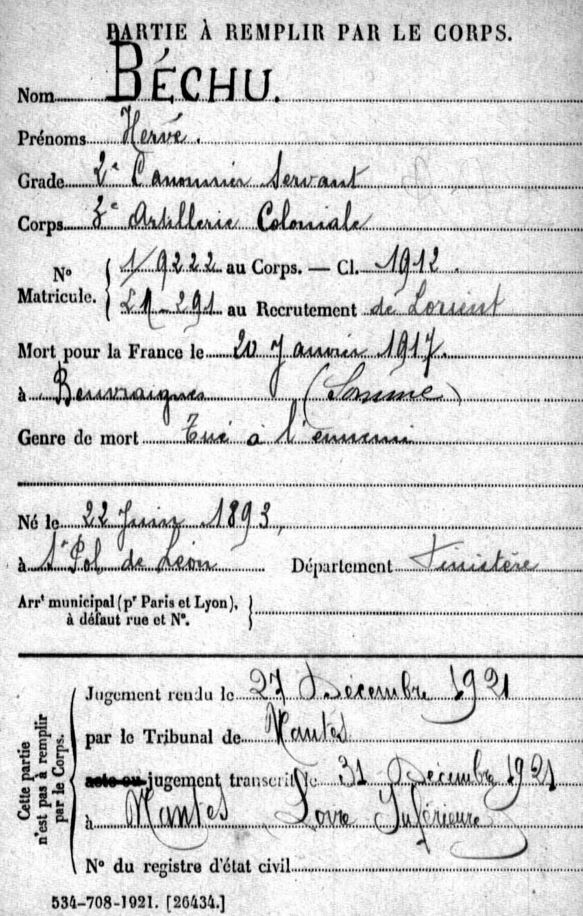 PARTIE À REMPLIR PAR LE CORPS.
Nom BÉCHU.
Prénoms Hervé.
Grade 2e Canonnier Servant
Corps 3e Artillerie Coloniale
N° Matricule. 1/9222 au Corps. — Cl. 1912.
21-291 au Recrutement de Lorient
Mort pour la France le 20 Janvier 1917.
à Beuvraignes (Somme)
Genre de mort Tué à l'ennemi
Né le 22 Juin 1893,
à St Pol de Léon Département Finistère
Arrt municipal (pr Paris et Lyon),
à défaut rue et N°.
Cette partie n'est pas à remplir par le Corps.
Jugement rendu le 27 Décembre 1921
par le Tribunal de Nantes
acte ou jugement transcrit le 31 Décembre 1921
à Nantes Loire Inférieure
N° du registre d'état civil
534-708-1921. [26434.]